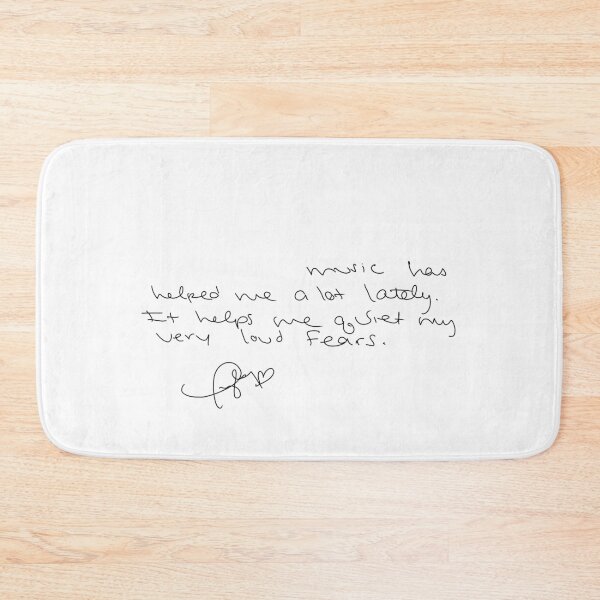 music has
helped me a lot lately.
It helps me quiet my
very loud fears.